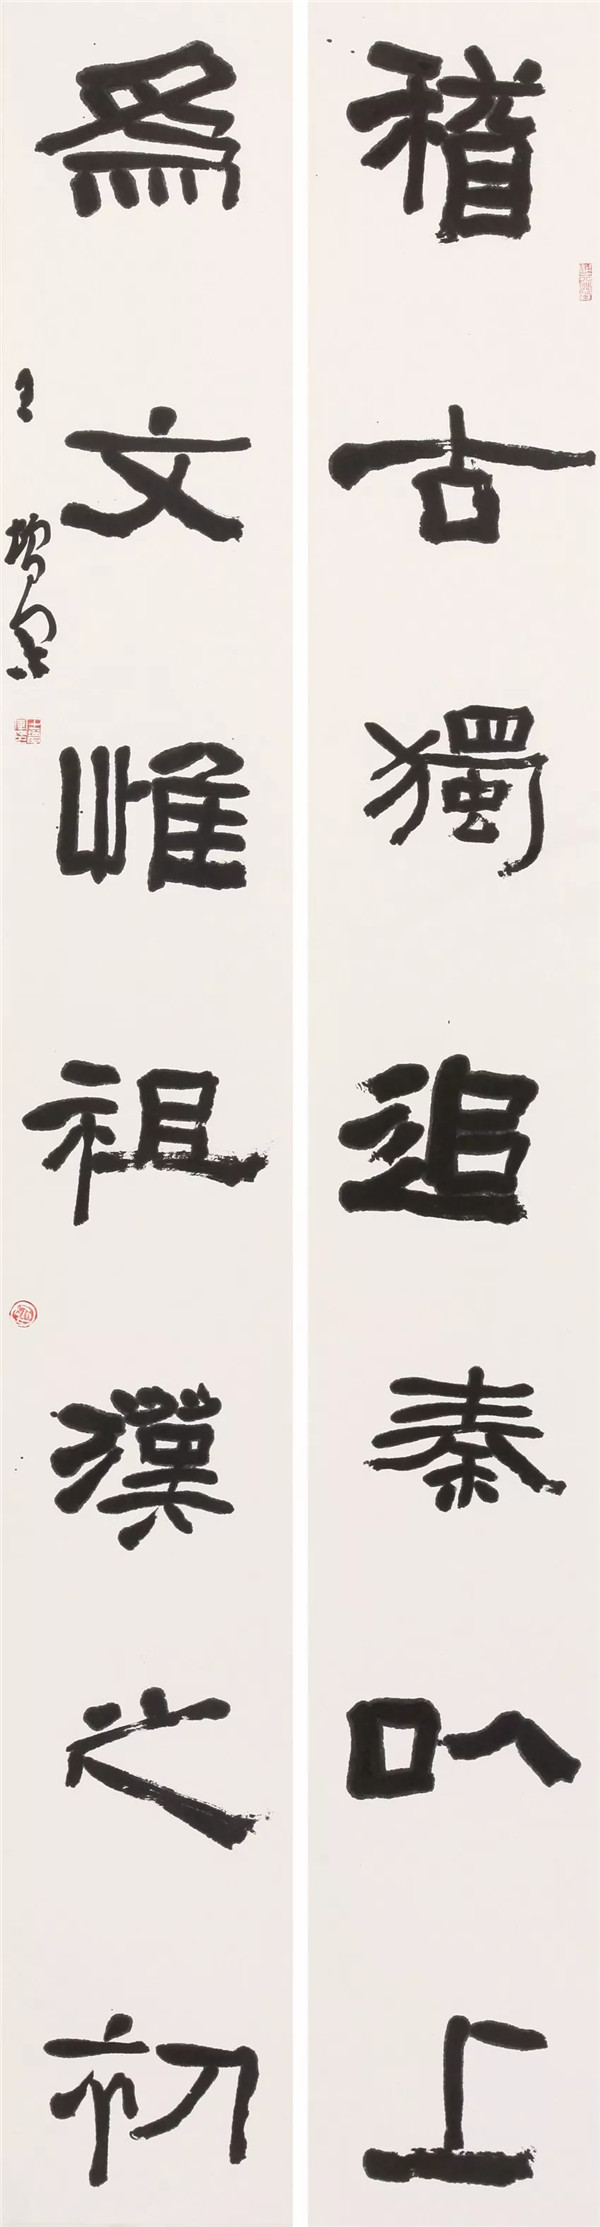 稽古獨追秦以上
爲文惟祖漢之初
王